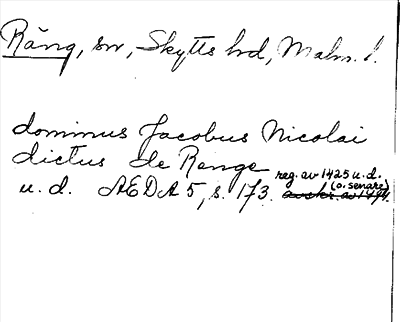 Räng, sn, Skytts hd, Malm. l.
dominus Jacobus Nicolai
dictus de Renge
reg. av 1425 u.d.
(o. senare)
u. d. AEDA 5, s. 173.